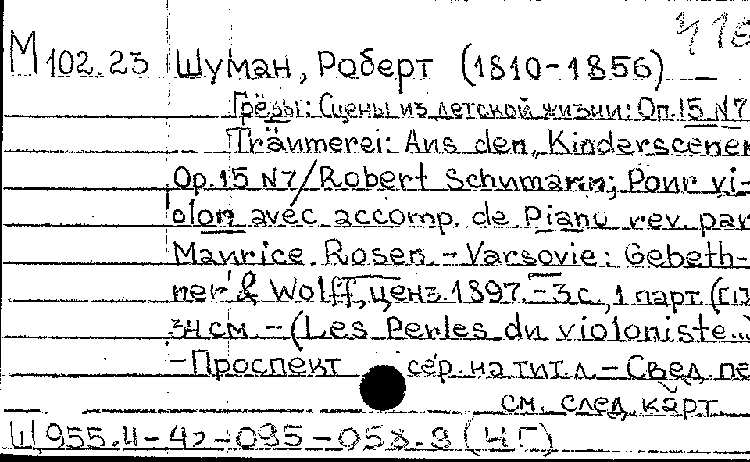 М 102.23 Шуман, Роберт (1810-1856)
Грёзы: Сцены из детской жизни: Оп.15 N7
Träumerei: Aus den „Kinderscenen
Op.15 N7/Robert Schumann; Pour vi-
olon avec accomp. de Piano rev. par
Maurice Rosen. - Varsovie: Gebeth-
ner & Wolff, ценз. 1897. - 3 с., 1 парт. (
34 см. - (Les Perles du violoniste...
- Проспект сер. на тит. л. - Свед. пе
см. след. карт.
Ш 955.4-42-095-058.9 (НГ)